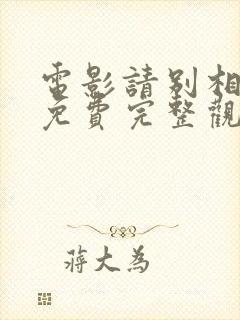 電影請別相
免費完整觀
蔣大為